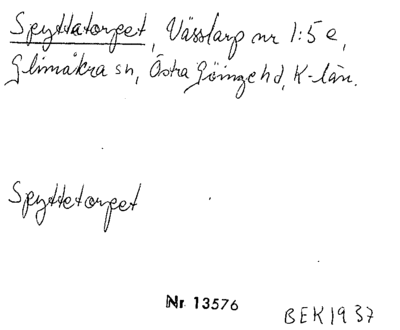 Spyttatorpet, Vässlarp nr 1:5 e,
Glimåkra sn, Östra Göinge hd, K-län.
Spyttetorpet
Nr 13576
BEK 1937